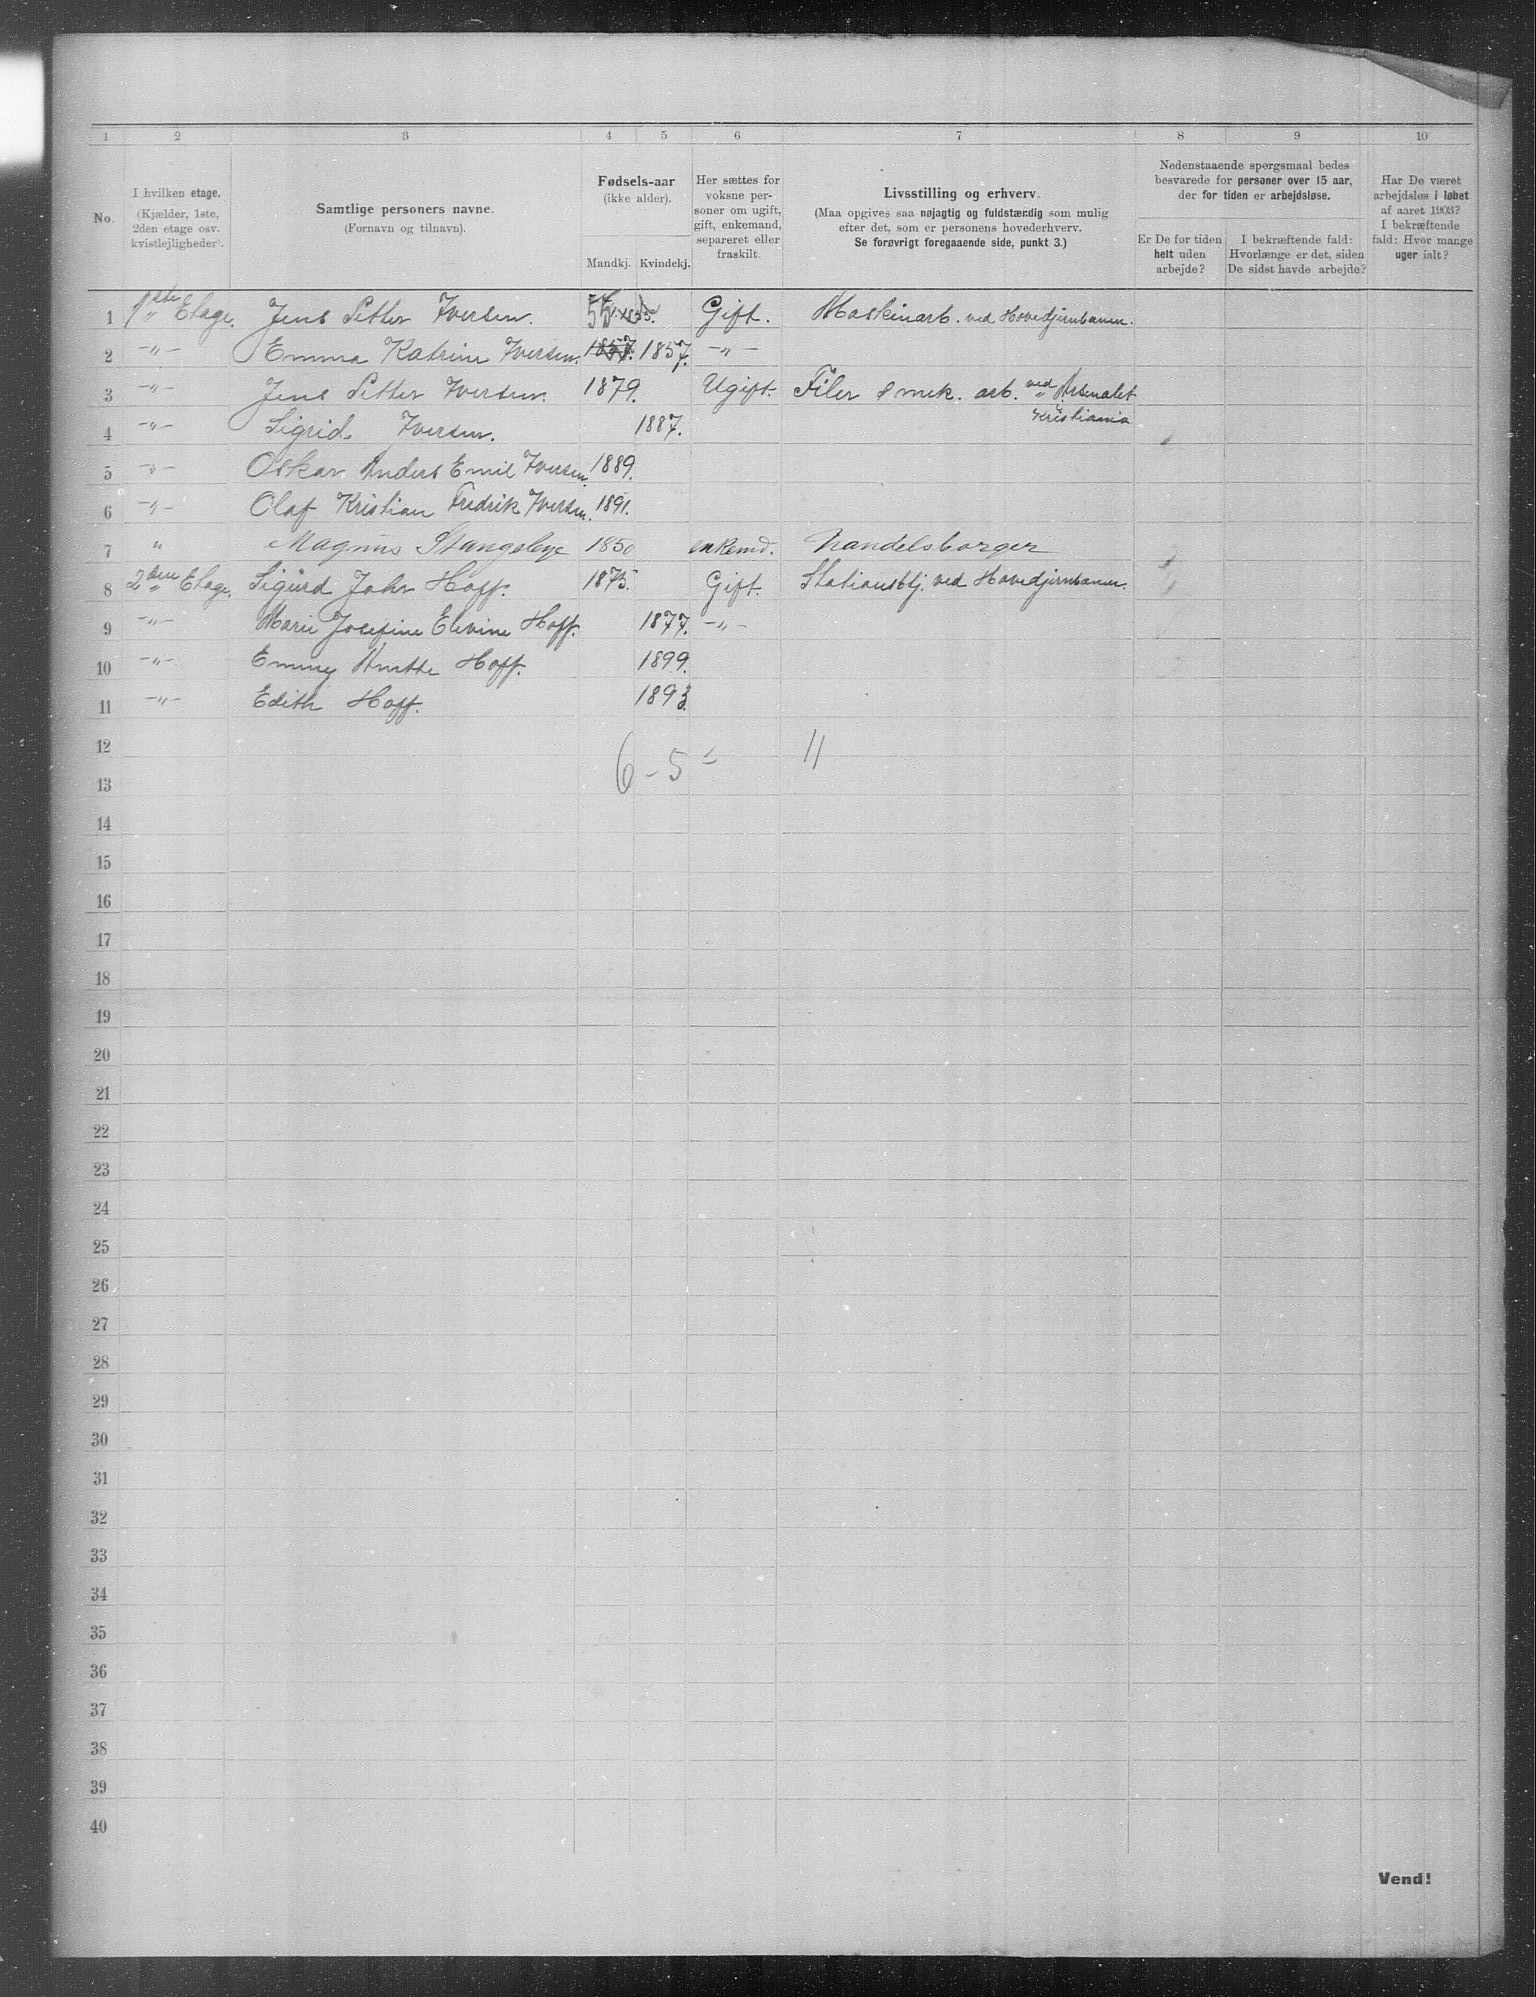 1 2 3 4 5 6 7 8 9 10
No.
I hvilken etage.
(Kjælder, 1ste,
2den etage osv.
kvistlejligheder).
Samtlige personers navne.
(Fornavn og tilnavn).
Fødsels-aar
(ikke alder).
Mandkj. Kvindekj.
Her sættes for
voksne per-
soner om ugift,
gift, enkemand,
separeret eller
fraskilt.
Livsstilling og erhverv.
(Maa opgives saa nøjagtig og fuldstændig som mulig
efter det, som er personens hovederhverv.
Se forøvrigt foregaaende side, punkt 3.)
Nedenstaaende spørgsmaal bedes
besvarede for personer over 15 aar,
der for tiden er arbejdsløse.
Er De for tiden
helt uden
arbejde?
I bekræftende fald:
Hvorlænge er det, siden
De sidst havde arbejde?
Har De været
arbejdsløs i løbet
af aaret 1903?
I bekræftende
fald: Hvor mange
uger ialt?
1 1ste Etage. Jens Petter Iversen. 55 Gift. Maskinarb. ved Hovedjernbanen.
2 -"- Emma Katrine Iversen. 1857. 1857. -"-
3 -"- Jens Petter Iversen. 1879. Ugift. Filer & mek. arb. ved Arsenalet
Kristiania
4 -"- Sigrid Iversen. 1887.
5 -"- Oskar Anders Emil Iversen. 1889.
6 -"- Olaf Kristian Fredrik Iversen. 1891.
7 " Magnus 1850 enkemd. Handelsborger
8 2den Etage. Sigurd John Hoff. 1875. Gift. Stationsbtj. ved Hovedjernbanen.
9 -"- Marie Josefine Elevine Hoff. 1877. -"-
10 -"- Emmy Hoff. 1899.
11 -"- Edith Hoff. 1893.
12
6 - 5 = 11
13
14
15
16
17
18
19
20
21
22
23
24
25
26
27
28
29
30
31
32
33
34
35
36
37
38
39
40
Vend!